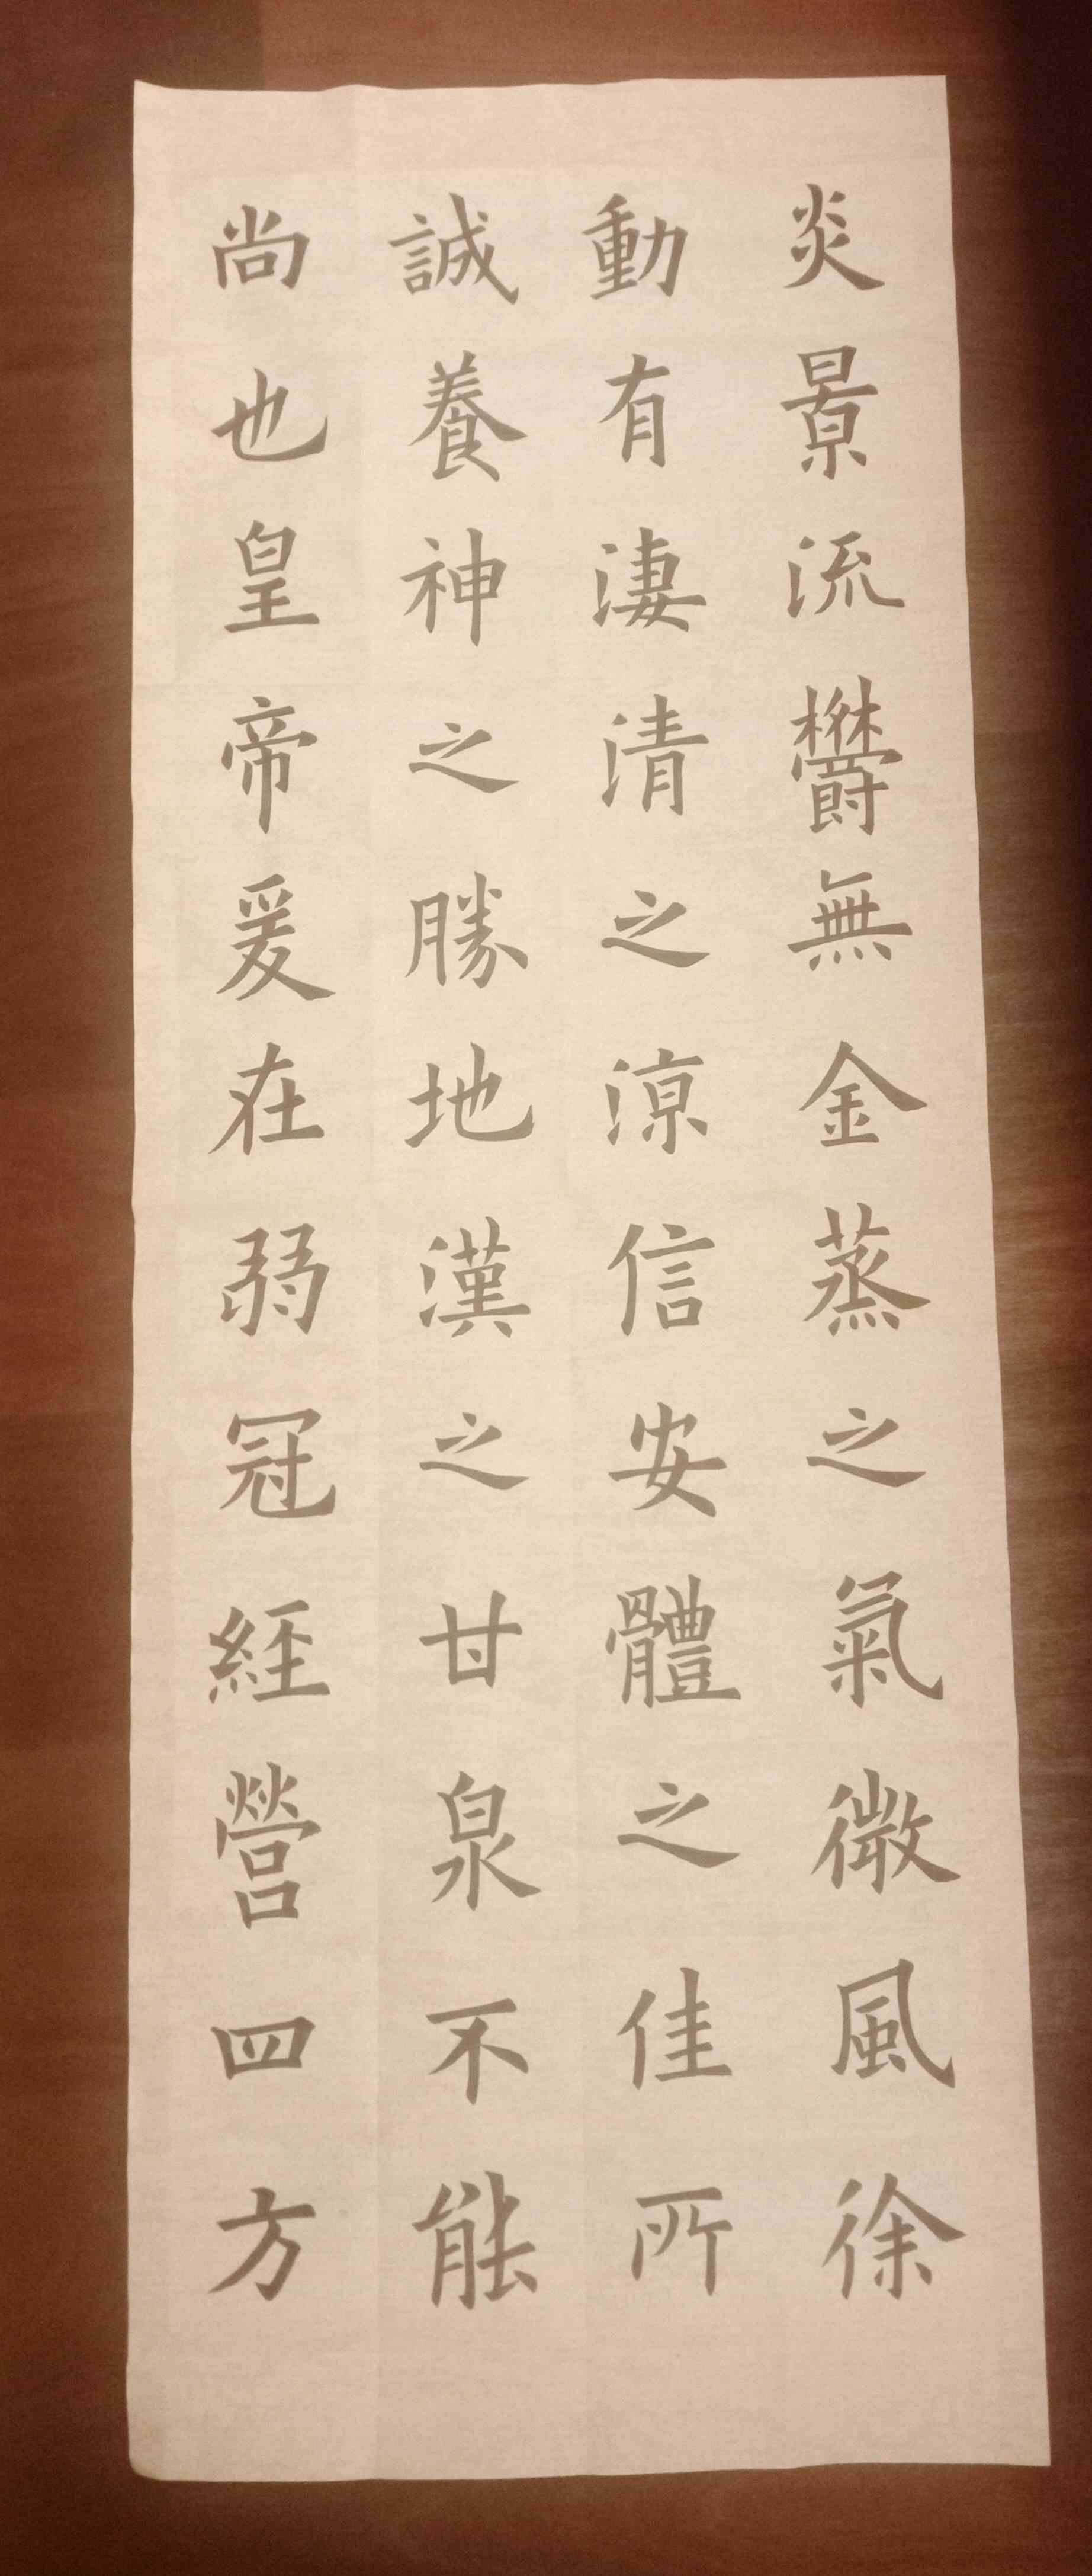 炎景流欝無金蒸之氣微風徐
動有淒清之涼信安體之佳所
誠養神之勝地漢之甘泉不能
尚也皇帝爰在弱冠經營四方